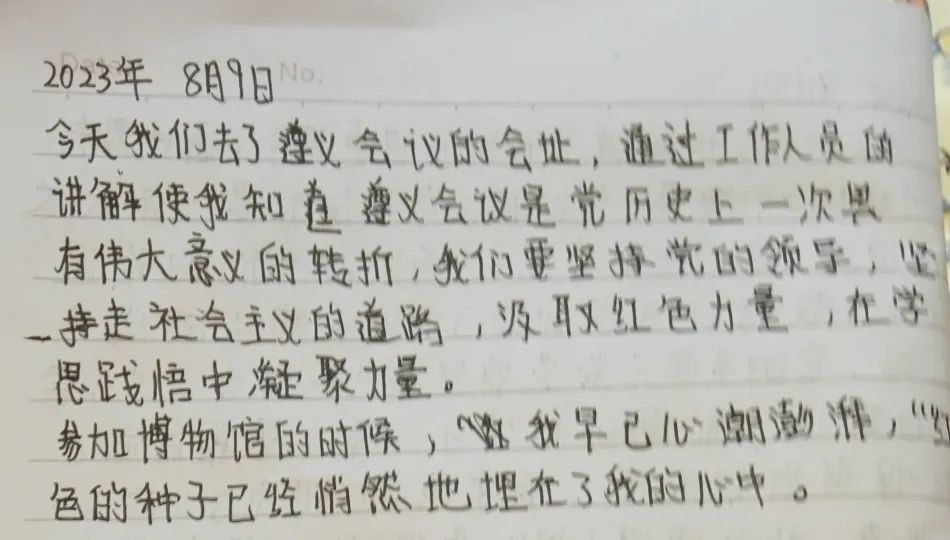 2023年 8月9日 No.
今天我们去了遵义会议的会址，通过工作人员的
讲解使我知道遵义会议是党历史上一次具
有伟大意义的转折，我们要坚持党的领导，坚
持走社会主义的道路，汲取红色力量，在学
思践悟中凝聚力量。
参加博物馆的时候，我早已心潮澎湃，“红
色的种子已经悄然地埋在了我的心中。